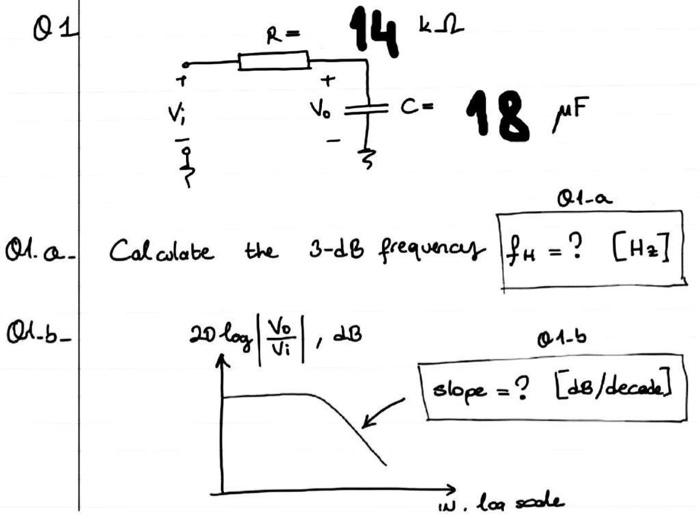 Q1
R = 14 kΩ
+ +
Vi Vo C = 18 μF
- -
Q1-a
Q1.a- Calculate the 3-dB frequency fH = ? [Hz]
Q1-b- 20 log |Vo/Vi| , dB
Q1-b
slope = ? [dB/decade]
log scale